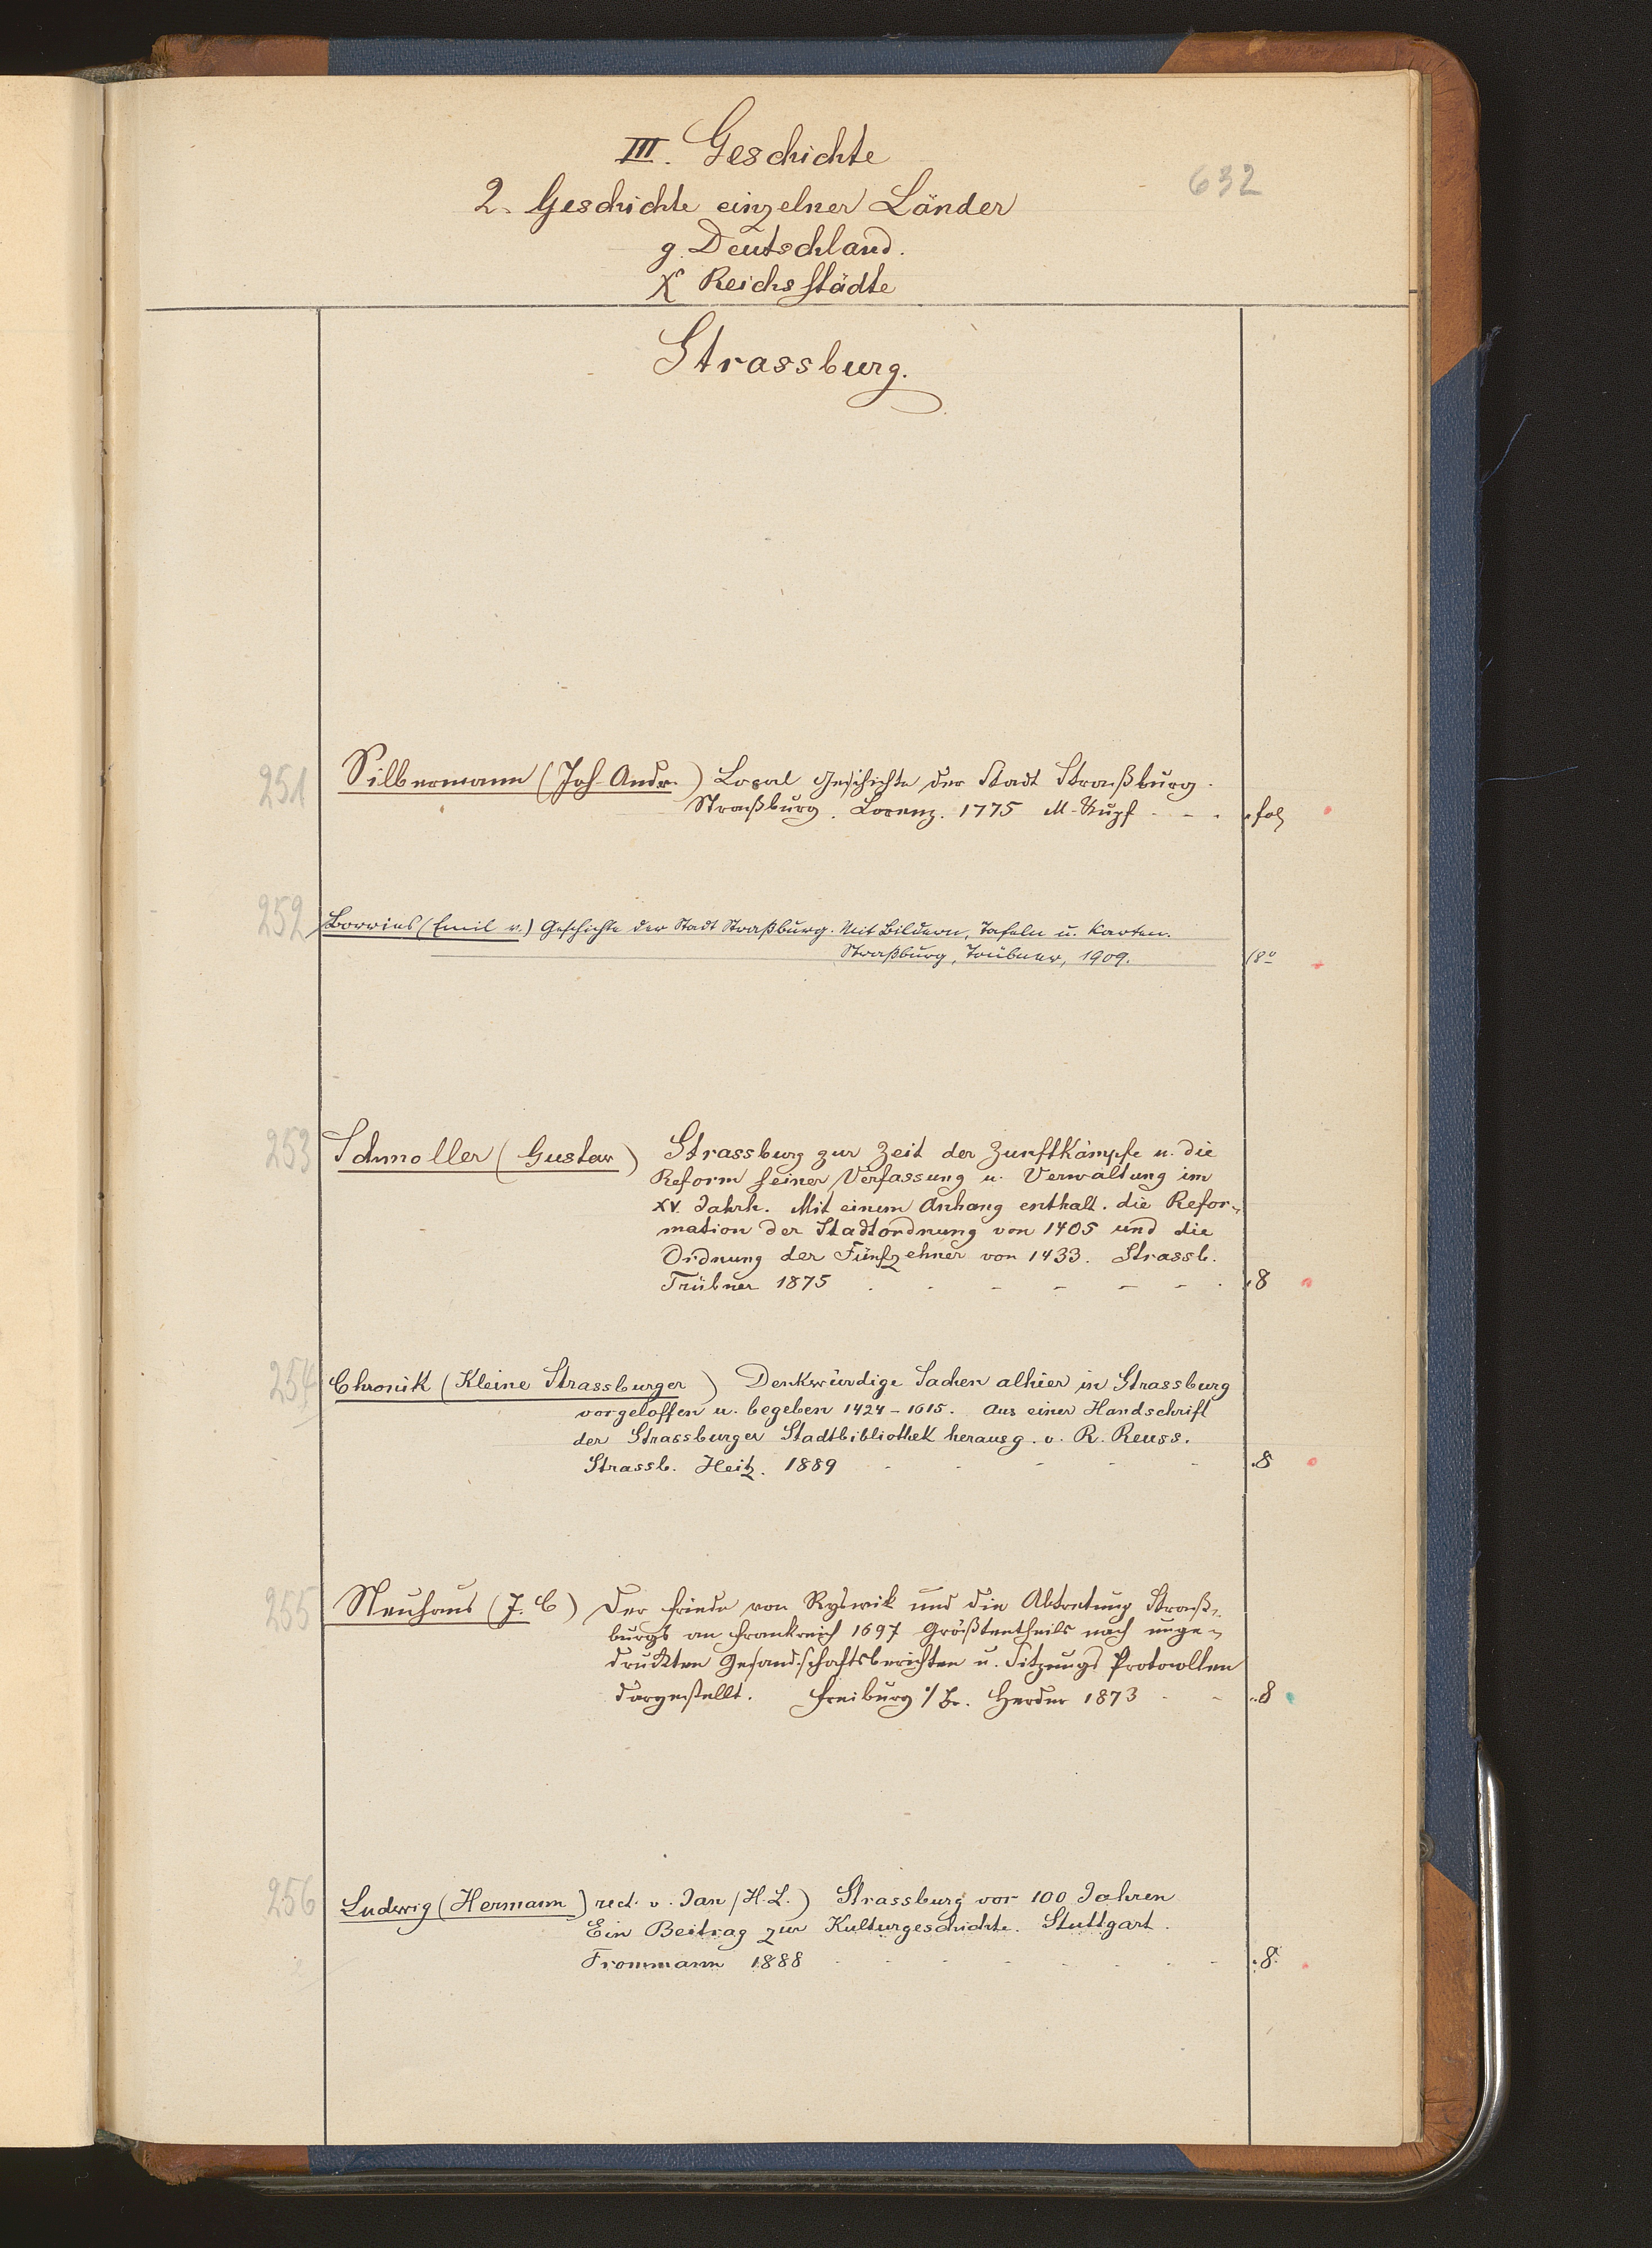 III. Geschichte
632
2. Geschichte einzelner Länder
g. Deutschland.
Reichsstädte
Strassburg.
251 Silbermann (Joh. Andr.) Local Geschichte der Stadt Straßburg.
Straßburg. Lorenz. 1775 M. Kupf - - . fol
252 Borries (Emil v.) Geschichte der Stadt Straßburg. Mit Bildern, Tafeln u. Karten.
Straßburg, Trübner, 1909. 8°
253 Schmoller (Gustav) Strassburg zur Zeit der Zunftkämpfe u. die
Reform seiner Verfassung u. Verwaltung im
XV. Jahrh. Mit einem Anhang enthalt. die Refor-
mation der Stadtordnung von 1405 und die
Ordnung der Fünfzehner von 1433. Strassb.
Trübner 1875 . - - - - - . 8
254 Chronik (Kleine Strassburger) Denkwürdige Sachen alhier in Strassburg
vorgeloffen u. begeben 1424-1615. Aus einer Handschrift
der Strassburger Stadtbibliothek herausg. v. R. Reuss.
Strassb. Heitz. 1889 - - - - - . 8
255 Neuhaus (J. C) Der Friede von Ryswik und die Abtretung Straß-
burgs an Frankreich 1697 Größtentheils nach unge-
druckten Gesandschaftsberichten u. Sitzungs Protocollen
dargestellt. Freiburg i/Br. Herder 1873 - - . 8
256 Ludwig (Hermann) rect. v. Jan (H. L.) Strassburg vor 100 Jahren
Ein Beitrag zur Kulturgeschichte. Stuttgart.
Frommann 1888 - - - - - - . 8